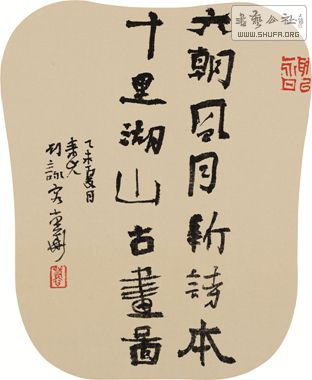 六朝風月新詩本
十里湖山古畫圖
乙未夏月
書藝公社
WWW.SHUFA.ORG